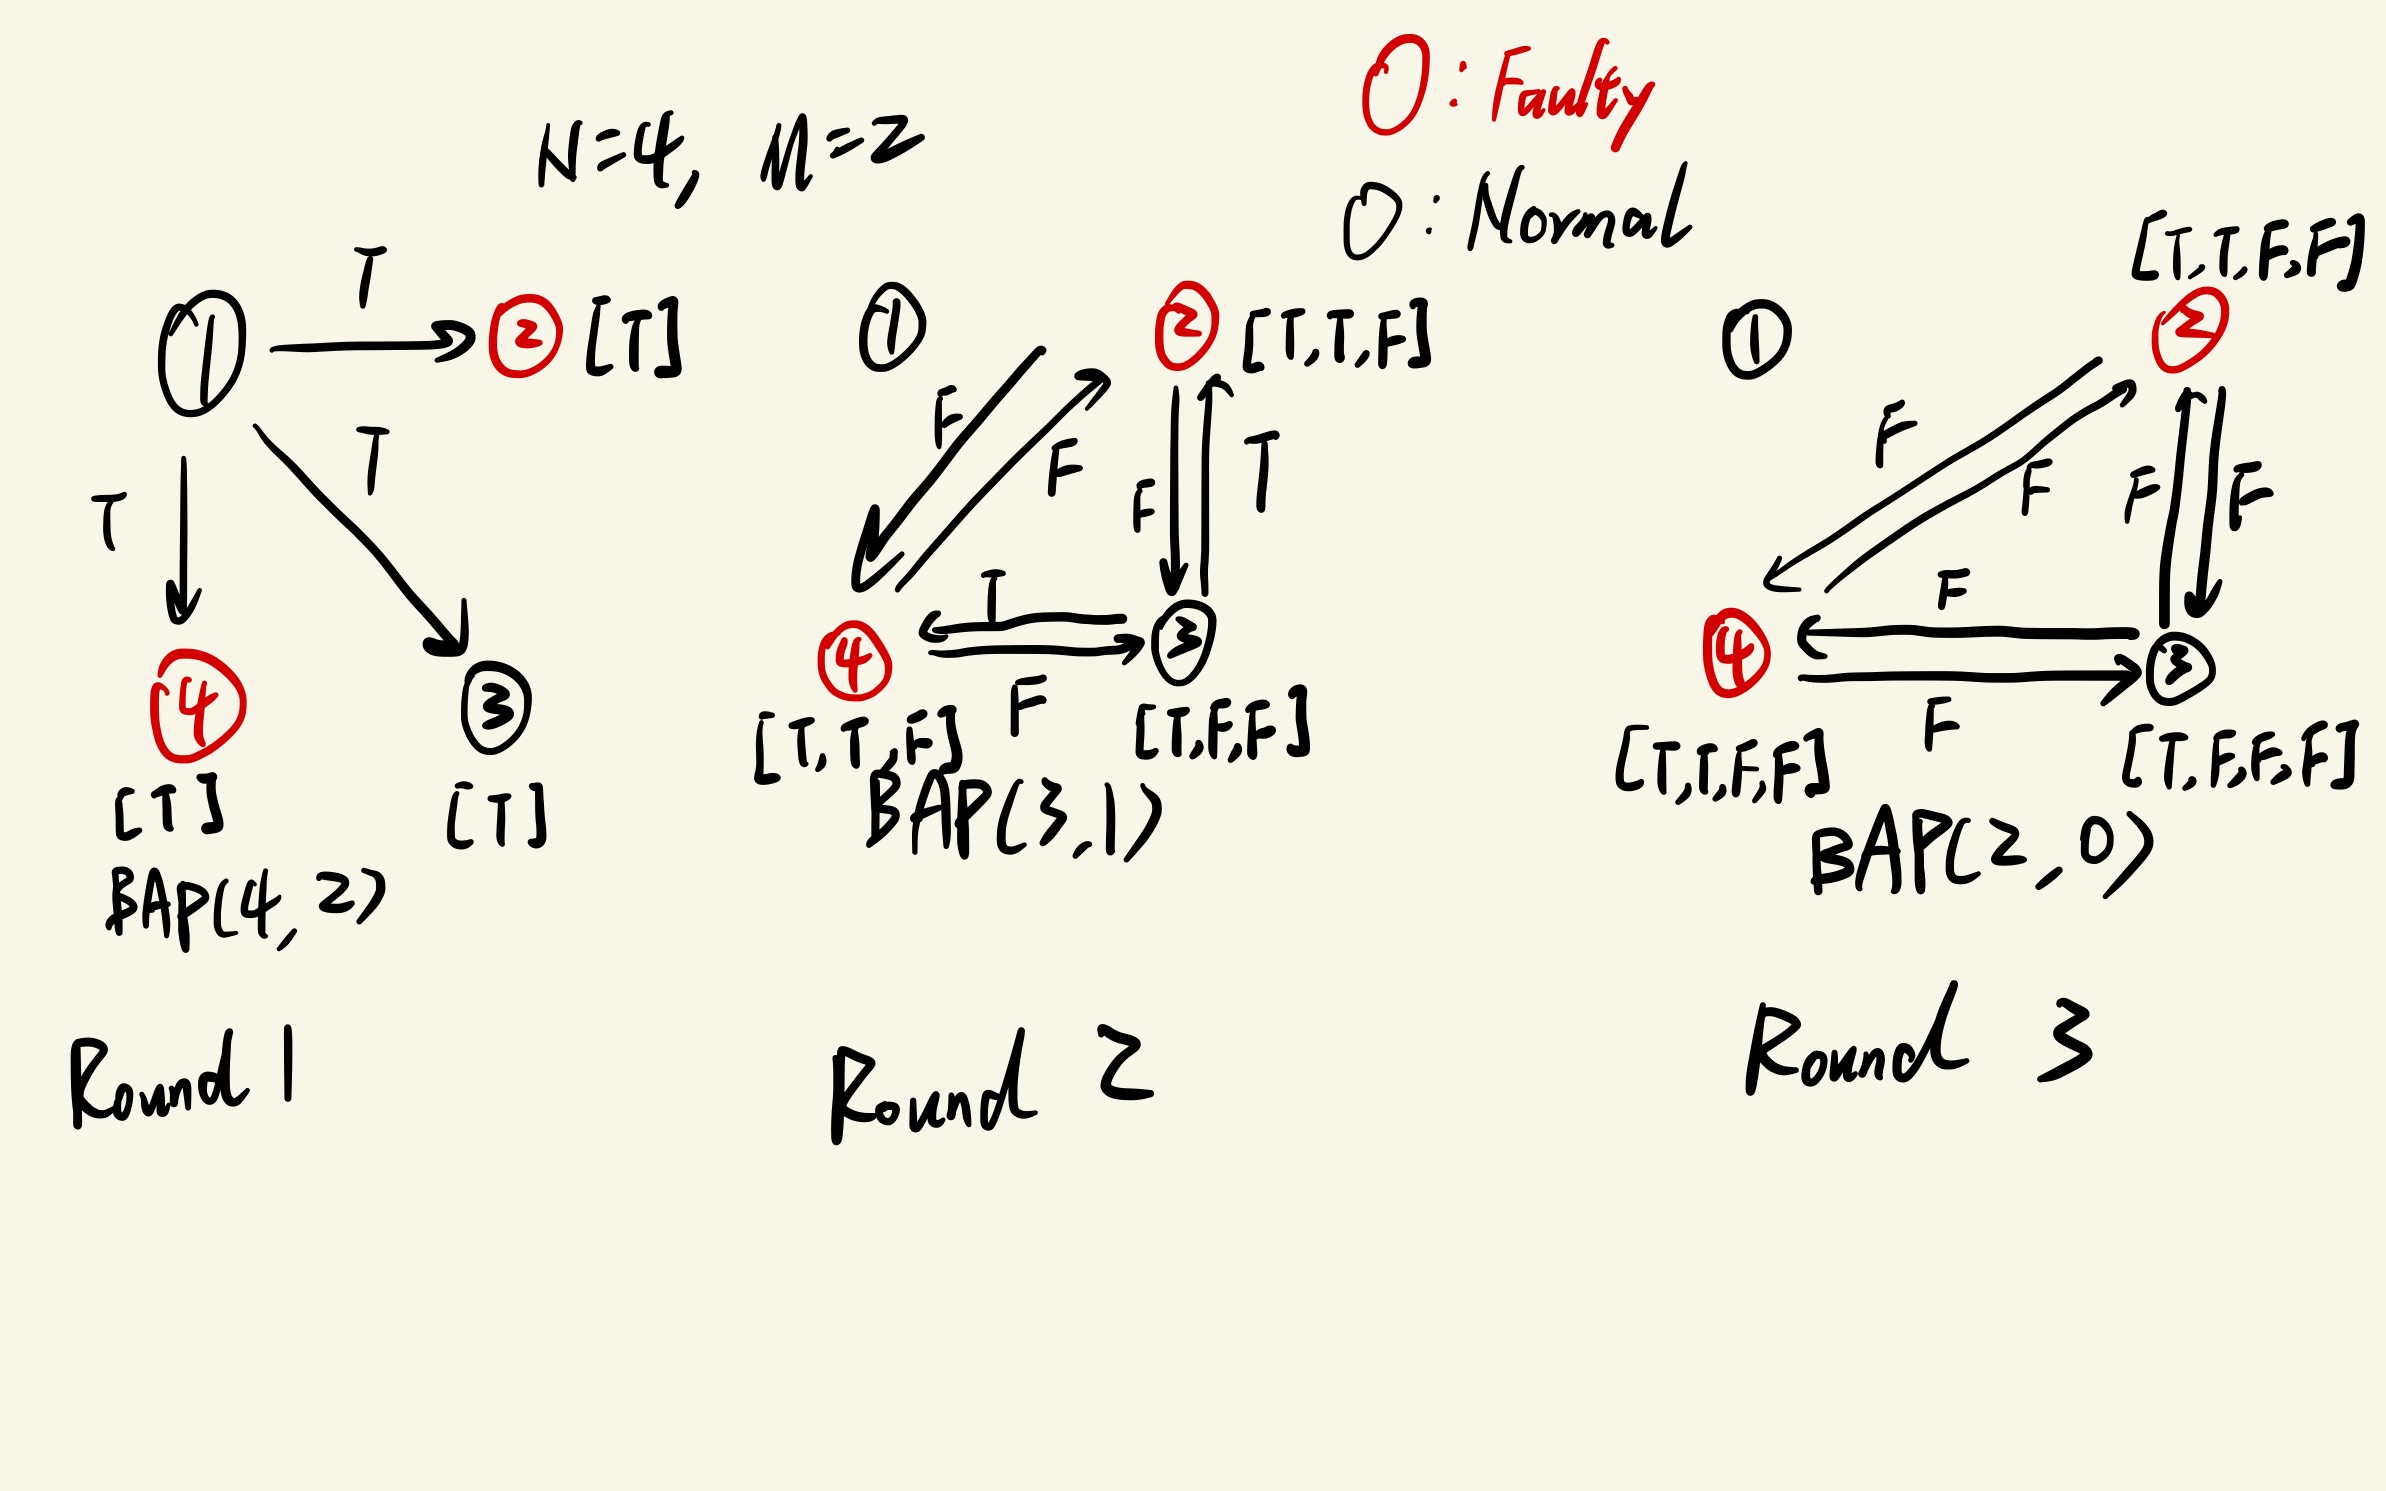 N=4, M=2
O : Faulty
O : Normal
T
1
2
[T]
T
T
4
3
[T]
[T]
BAP(4,2)
Round 1
1
2
[T,T,F]
F
F
F
T
T
4
3
F
[T,T,F]
[T,F,F]
BAP(3,1)
Round 2
[T,T,F,F]
1
2
F
F
F
F
F
4
3
F
[T,T,F,F]
[T,F,F,F]
BAP(2,0)
Round 3